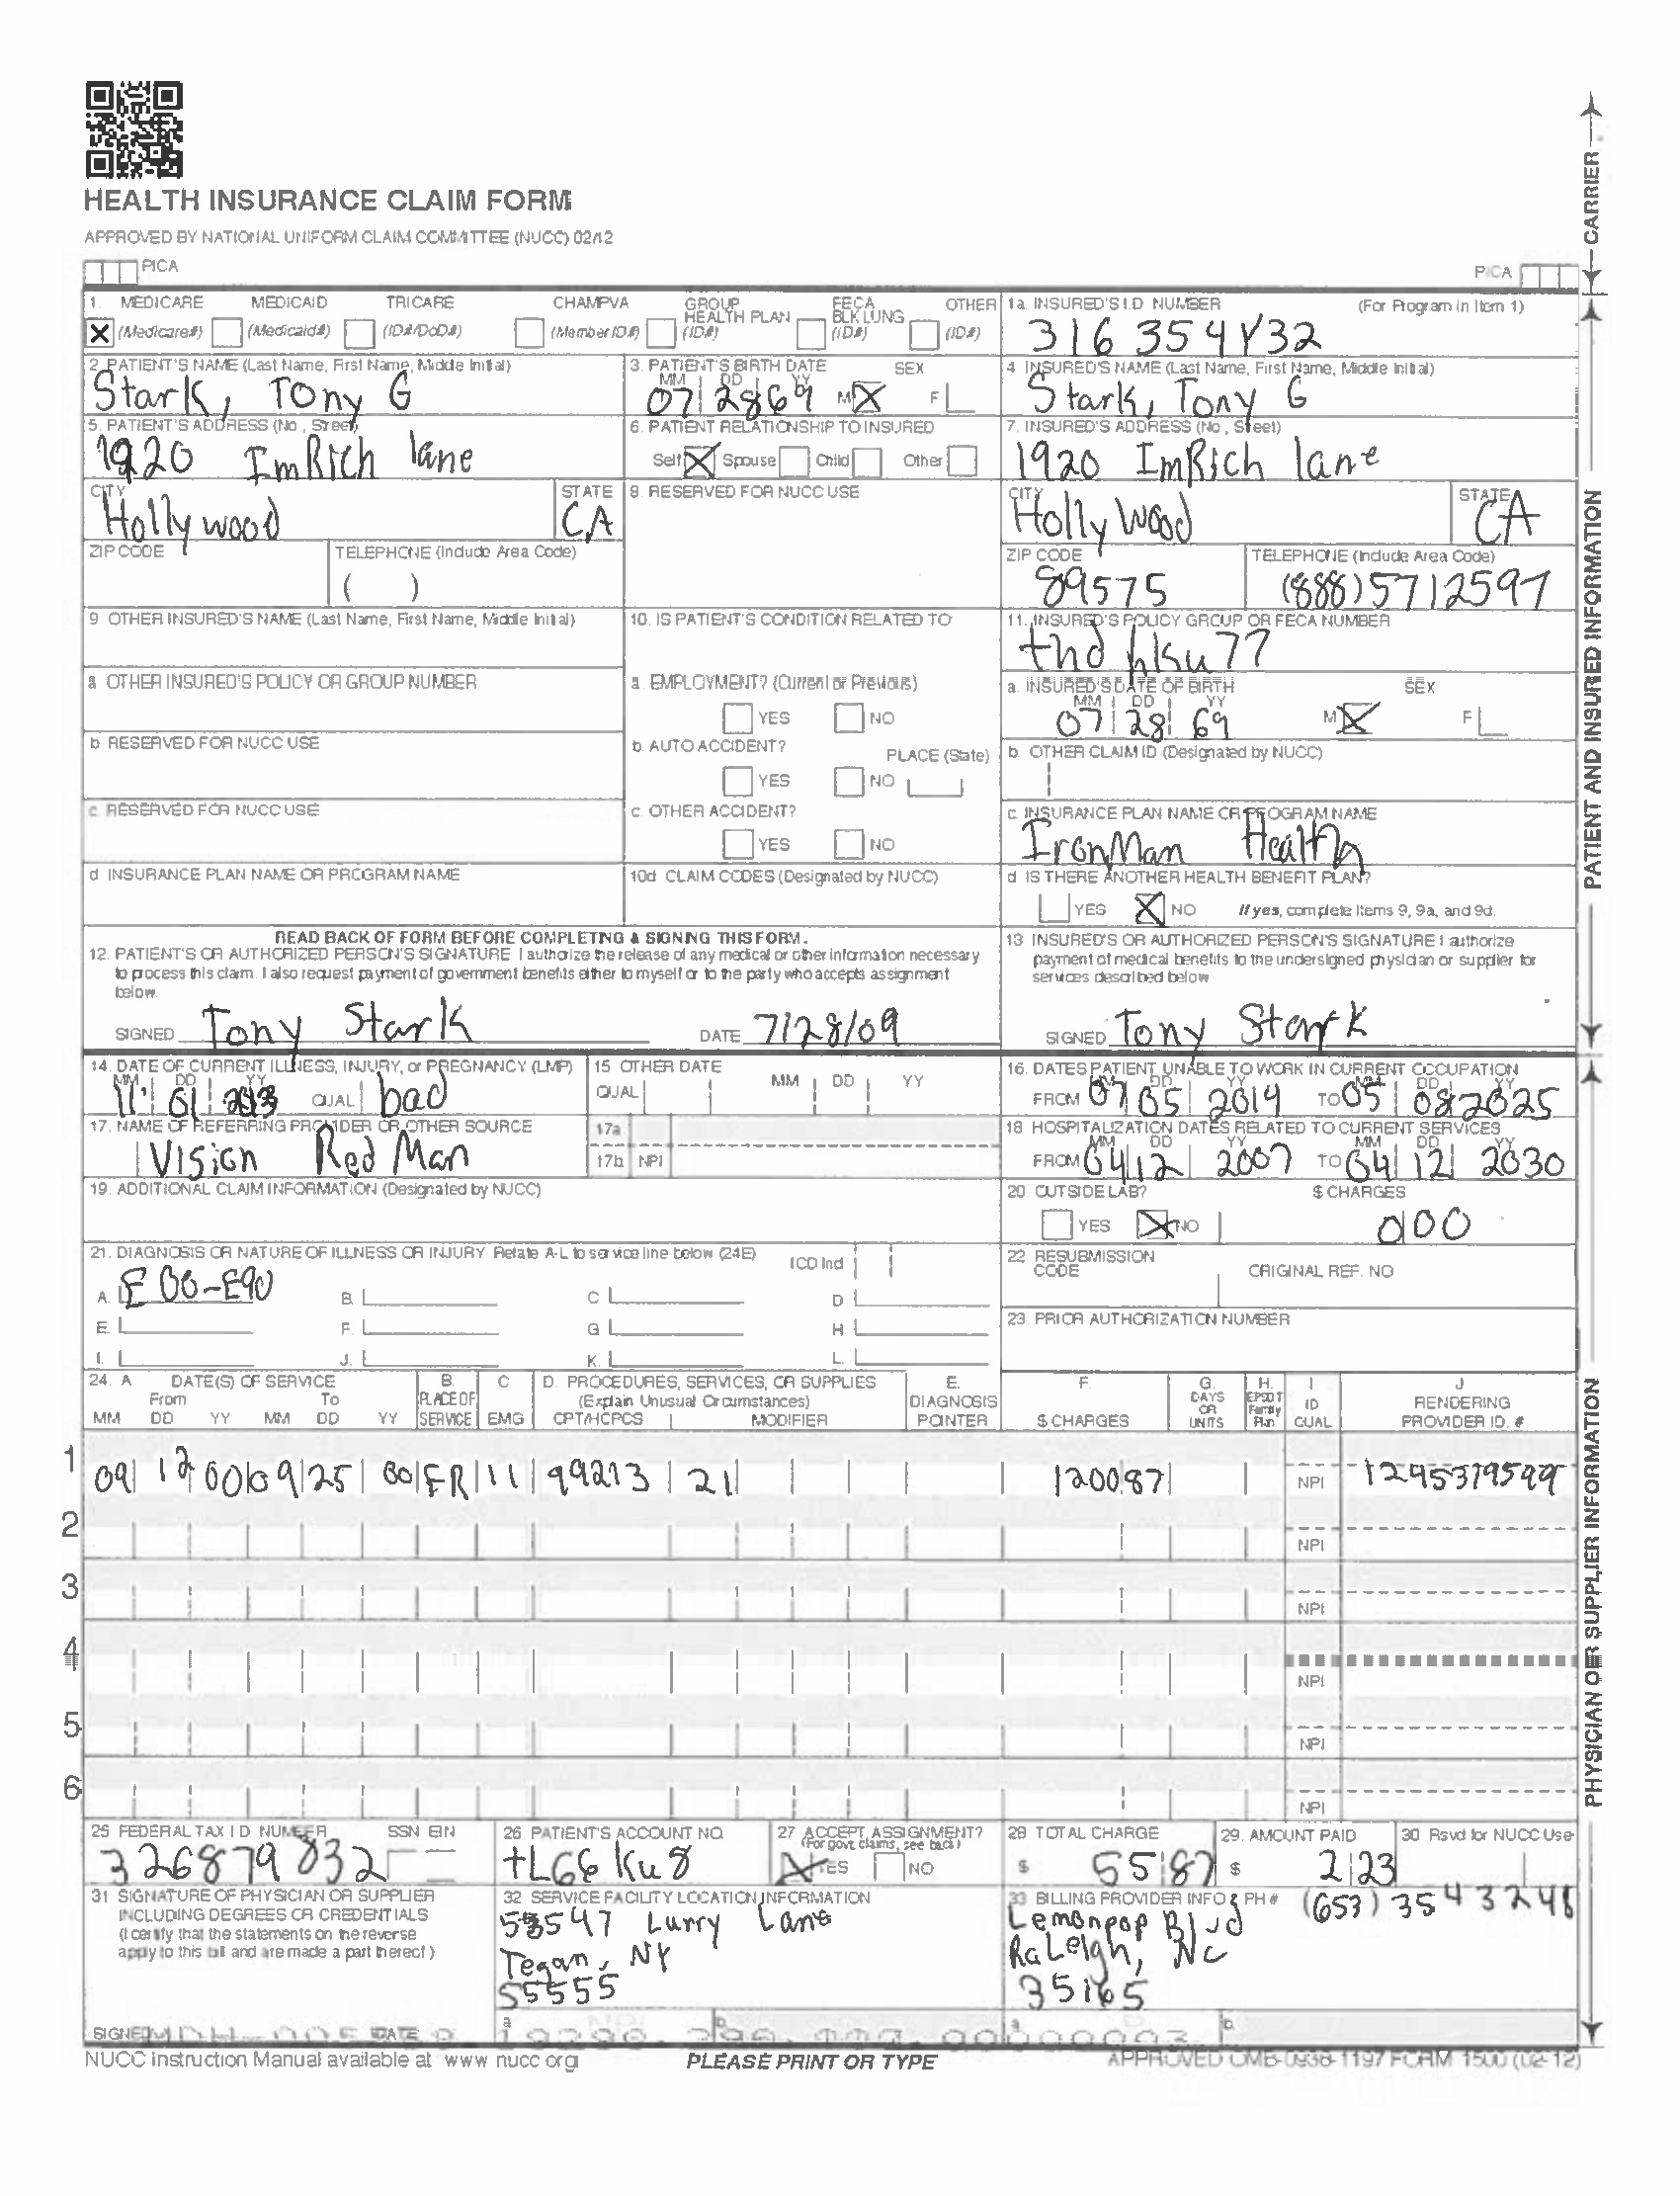 HEALTH INSURANCE CLAIM FORM
APPROVED BY NATIONAL UNIFORM CLAIM COMMITTEE (NUCC) 02/12
PICA
PICA
CARRIER
1. MEDICARE MEDICAID TRICARE CHAMPVA GROUP HEALTH PLAN FECA BLK LUNG OTHER
(Medicare#) (Medicaid#) (ID#/DoD#) (Member ID#) (ID#) (ID#) (ID#)
1a. INSURED'S I.D. NUMBER (For Program in Item 1)
316 354Y32
2. PATIENT'S NAME (Last Name, First Name, Middle Initial)
Stark, Tony G
3. PATIENT'S BIRTH DATE SEX
MM DD YY
07 28 69 M X F
4. INSURED'S NAME (Last Name, First Name, Middle Initial)
Stark, Tony G
5. PATIENT'S ADDRESS (No., Street)
1920 ImRich lane
6. PATIENT RELATIONSHIP TO INSURED
Self X Spouse Child Other
7. INSURED'S ADDRESS (No., Street)
1920 ImRich lane
CITY STATE
Hollywood CA
8. RESERVED FOR NUCC USE
CITY STATE
HollyWood CA
ZIP CODE TELEPHONE (Include Area Code)
( )
ZIP CODE TELEPHONE (Include Area Code)
89575 (888)5712597
9. OTHER INSURED'S NAME (Last Name, First Name, Middle Initial)
10. IS PATIENT'S CONDITION RELATED TO
11. INSURED'S POLICY GROUP OR FECA NUMBER
thd hksu77
a. OTHER INSURED'S POLICY OR GROUP NUMBER
a. EMPLOYMENT? (Current or Previous)
YES NO
a. INSURED'S DATE OF BIRTH SEX
MM DD YY
07 28 69 M X F
b. RESERVED FOR NUCC USE
b. AUTO ACCIDENT? PLACE (State)
YES NO
b. OTHER CLAIM ID (Designated by NUCC)
c. RESERVED FOR NUCC USE
c. OTHER ACCIDENT?
YES NO
c. INSURANCE PLAN NAME OR PROGRAM NAME
IronMan Health
d. INSURANCE PLAN NAME OR PROGRAM NAME
10d. CLAIM CODES (Designated by NUCC)
d. IS THERE ANOTHER HEALTH BENEFIT PLAN?
YES X NO If yes, complete items 9, 9a, and 9d.
PATIENT AND INSURED INFORMATION
READ BACK OF FORM BEFORE COMPLETING & SIGNING THIS FORM.
12. PATIENT'S OR AUTHORIZED PERSON'S SIGNATURE I authorize the release of any medical or other information necessary
to process this claim. I also request payment of government benefits either to myself or to the party who accepts assignment
below.
SIGNED Tony Stark DATE 7/28/09
13. INSURED'S OR AUTHORIZED PERSON'S SIGNATURE I authorize
payment of medical benefits to the undersigned physician or supplier for
services described below.
SIGNED Tony Stark
14. DATE OF CURRENT ILLNESS, INJURY, or PREGNANCY (LMP)
MM DD YY
11 01 2013 QUAL. bad
15. OTHER DATE
QUAL. MM DD YY
16. DATES PATIENT UNABLE TO WORK IN CURRENT OCCUPATION
MM DD YY MM DD YY
FROM 07 05 2019 TO 05 08 2025
17. NAME OF REFERRING PROVIDER OR OTHER SOURCE
Vision Red Man
17a.
17b. NPI
18. HOSPITALIZATION DATES RELATED TO CURRENT SERVICES
MM DD YY MM DD YY
FROM 04 12 2007 TO 04 12 2030
19. ADDITIONAL CLAIM INFORMATION (Designated by NUCC)
20. OUTSIDE LAB? $ CHARGES
YES X NO 000
21. DIAGNOSIS OR NATURE OF ILLNESS OR INJURY Relate A-L to service line below (24E) ICD Ind.
A. E00-E90 B. C. D.
E. F. G. H.
I. J. K. L.
22. RESUBMISSION CODE ORIGINAL REF. NO.
23. PRIOR AUTHORIZATION NUMBER
24. A. DATE(S) OF SERVICE B. PLACE OF SERVICE C. EMG D. PROCEDURES, SERVICES, OR SUPPLIES E. DIAGNOSIS POINTER F. $ CHARGES G. DAYS OR UNITS H. EPSDT Family Plan I. ID. QUAL. J. RENDERING PROVIDER ID. #
From To (Explain Unusual Circumstances)
MM DD YY MM DD YY CPT/HCPCS MODIFIER
1 09 12 00 09 25 00 ER 11 99213 21 1200 87 NPI 1295379599
2 NPI
3 NPI
4 NPI
5 NPI
6 NPI
PHYSICIAN OR SUPPLIER INFORMATION
25. FEDERAL TAX I.D. NUMBER SSN EIN
326879832
26. PATIENT'S ACCOUNT NO.
tLG6Ku8
27. ACCEPT ASSIGNMENT?
(For govt. claims, see back)
X YES NO
28. TOTAL CHARGE
$ 55 87
29. AMOUNT PAID
$ 2 23
30. Rsvd for NUCC Use
31. SIGNATURE OF PHYSICIAN OR SUPPLIER
INCLUDING DEGREES OR CREDENTIALS
(I certify that the statements on the reverse
apply to this bill and are made a part thereof.)
SIGNED DATE
32. SERVICE FACILITY LOCATION INFORMATION
53547 Lurry Lane
Tegan, NY
55555
a. b.
33. BILLING PROVIDER INFO & PH # (657) 3543248
Lemonpop Blvd
RaLeigh, Nc
35165
a. b.
NUCC Instruction Manual available at: www.nucc.org
PLEASE PRINT OR TYPE
APPROVED OMB-0938-1197 FORM 1500 (02-12)